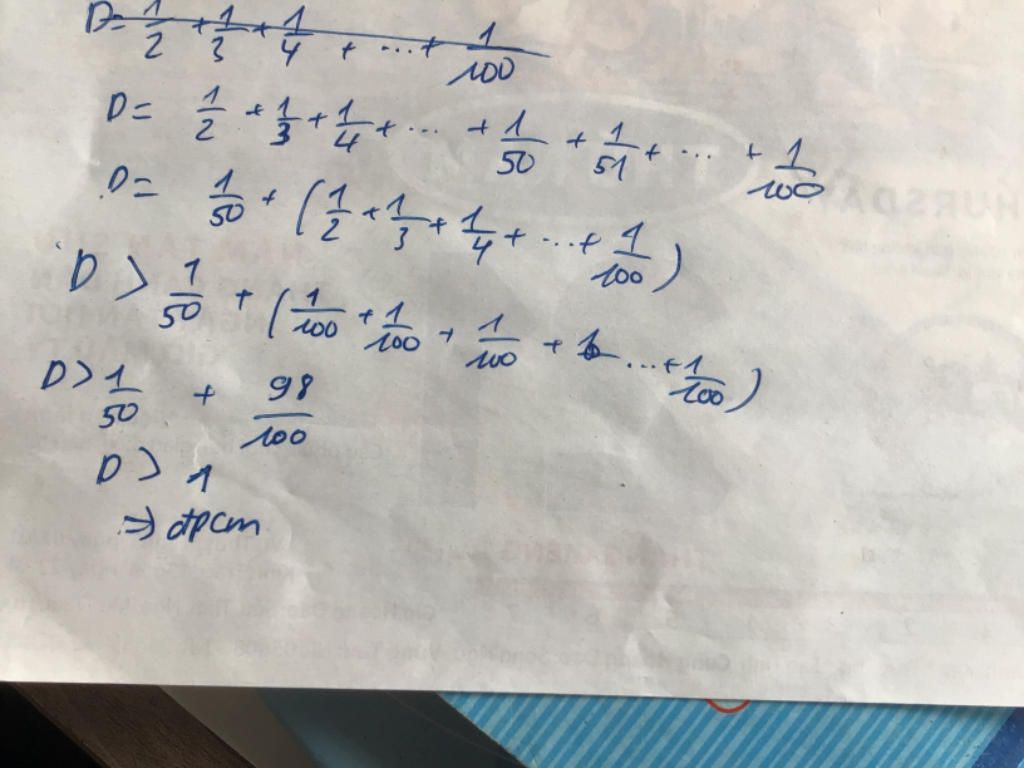 D = 1/2 + 1/3 + 1/4 + ... + 1/100
D = 1/2 + 1/3 + 1/4 + ... + 1/50 + 1/51 + ... + 1/100
D = 1/50 + (1/2 + 1/3 + 1/4 + ... + 1/100)
D > 1/50 + (1/100 + 1/100 + 1/100 + ... + 1/100)
D > 1/50 + 98/100
D > 1
=> đpcm